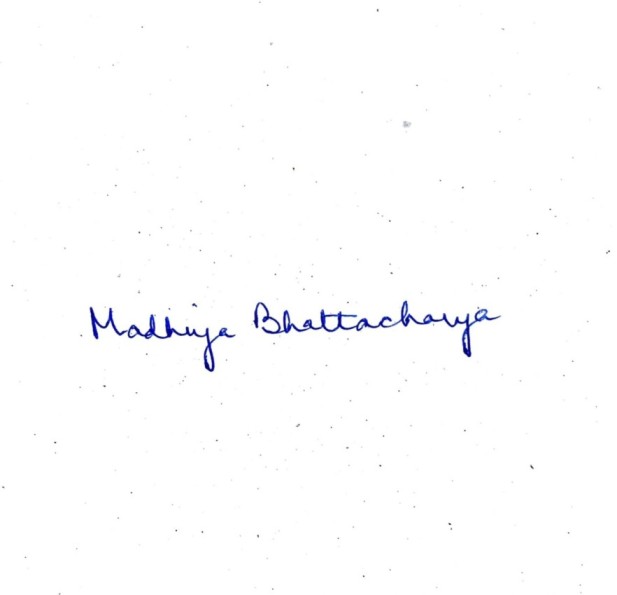 Madhuja Bhattacharya